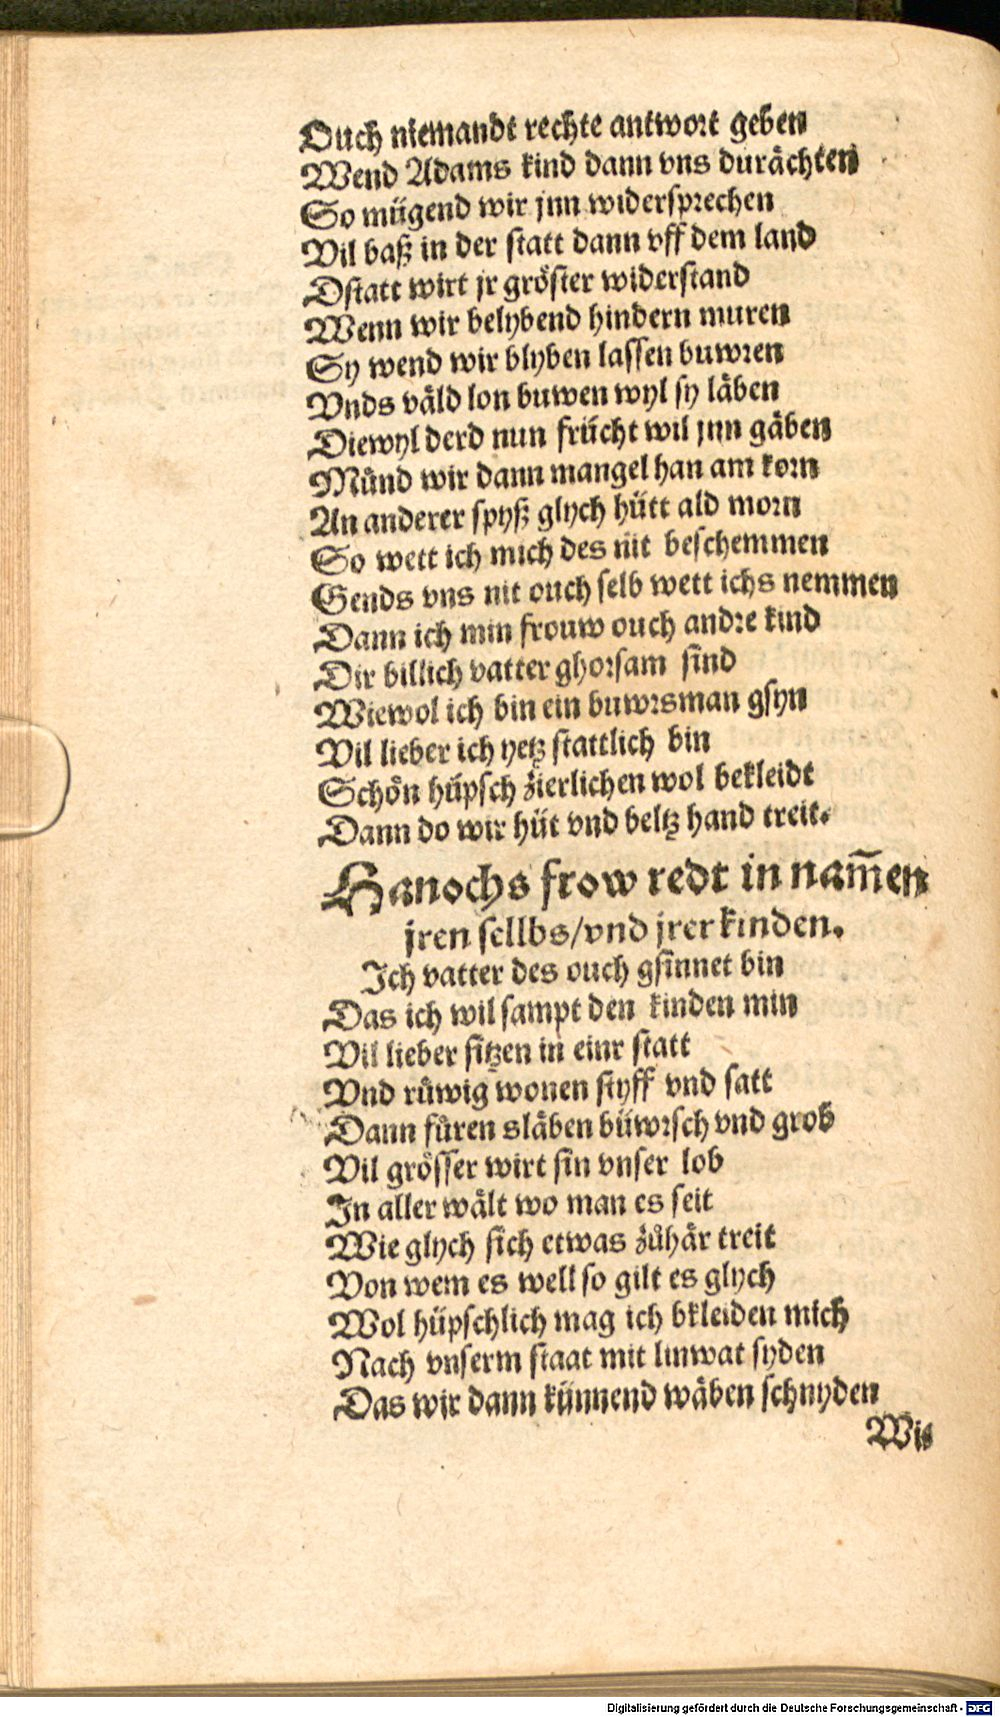 Ouch niemandt rechte antwort geben
Wend Adams kind dann vns durächten
So mügend wir jnn widersprechen
Vil baß in der statt dann vff dem land
Dstatt wirt jr gröster widerstand
Wenn wir belybend hindern muren
Sy wend wir blyben lassen buwren
Vnds väld lon buwen wyl sy läben
Diewyl derd nun frücht wil jnn gäben
Münd wir dann mangel han am korn
An anderer spyß glych hütt ald morn
So wett ich mich des nit beschemmen
Gends vns nit ouch selb wett ichs nemmen
Dann ich min frouw ouch andre kind
Dir billich vatter ghorsam sind
Wiewol ich bin ein buwrsman gsyn
Vil lieber ich yetz stattlich bin
Schön hüpsch zierlichen wol bekleidt
Dann do wir hüt vnd beltz hand treit.
Hanochs frow redt in nam̄en
jren sellbs/vnd jrer kinden.
Ich vatter des ouch gsinnet bin
Das ich wil sampt den kinden min
Vil lieber sitzen in einr statt
Vnd rüwig wonen styff vnd satt
Dann fůren släben büwrsch vnd grob
Vil grösser wirt sin vnser lob
In aller wält wo man es seit
Wie glych sich etwas zůhär treit
Von wem es well so gilt es glych
Wol hüpschlich mag ich bkleiden mich
Nach vnserm staat mit linwat syden
Das wir dann künnend wäben schnyden
Wis
Digitalisierung gefördert durch die Deutsche Forschungsgemeinschaft - DFG